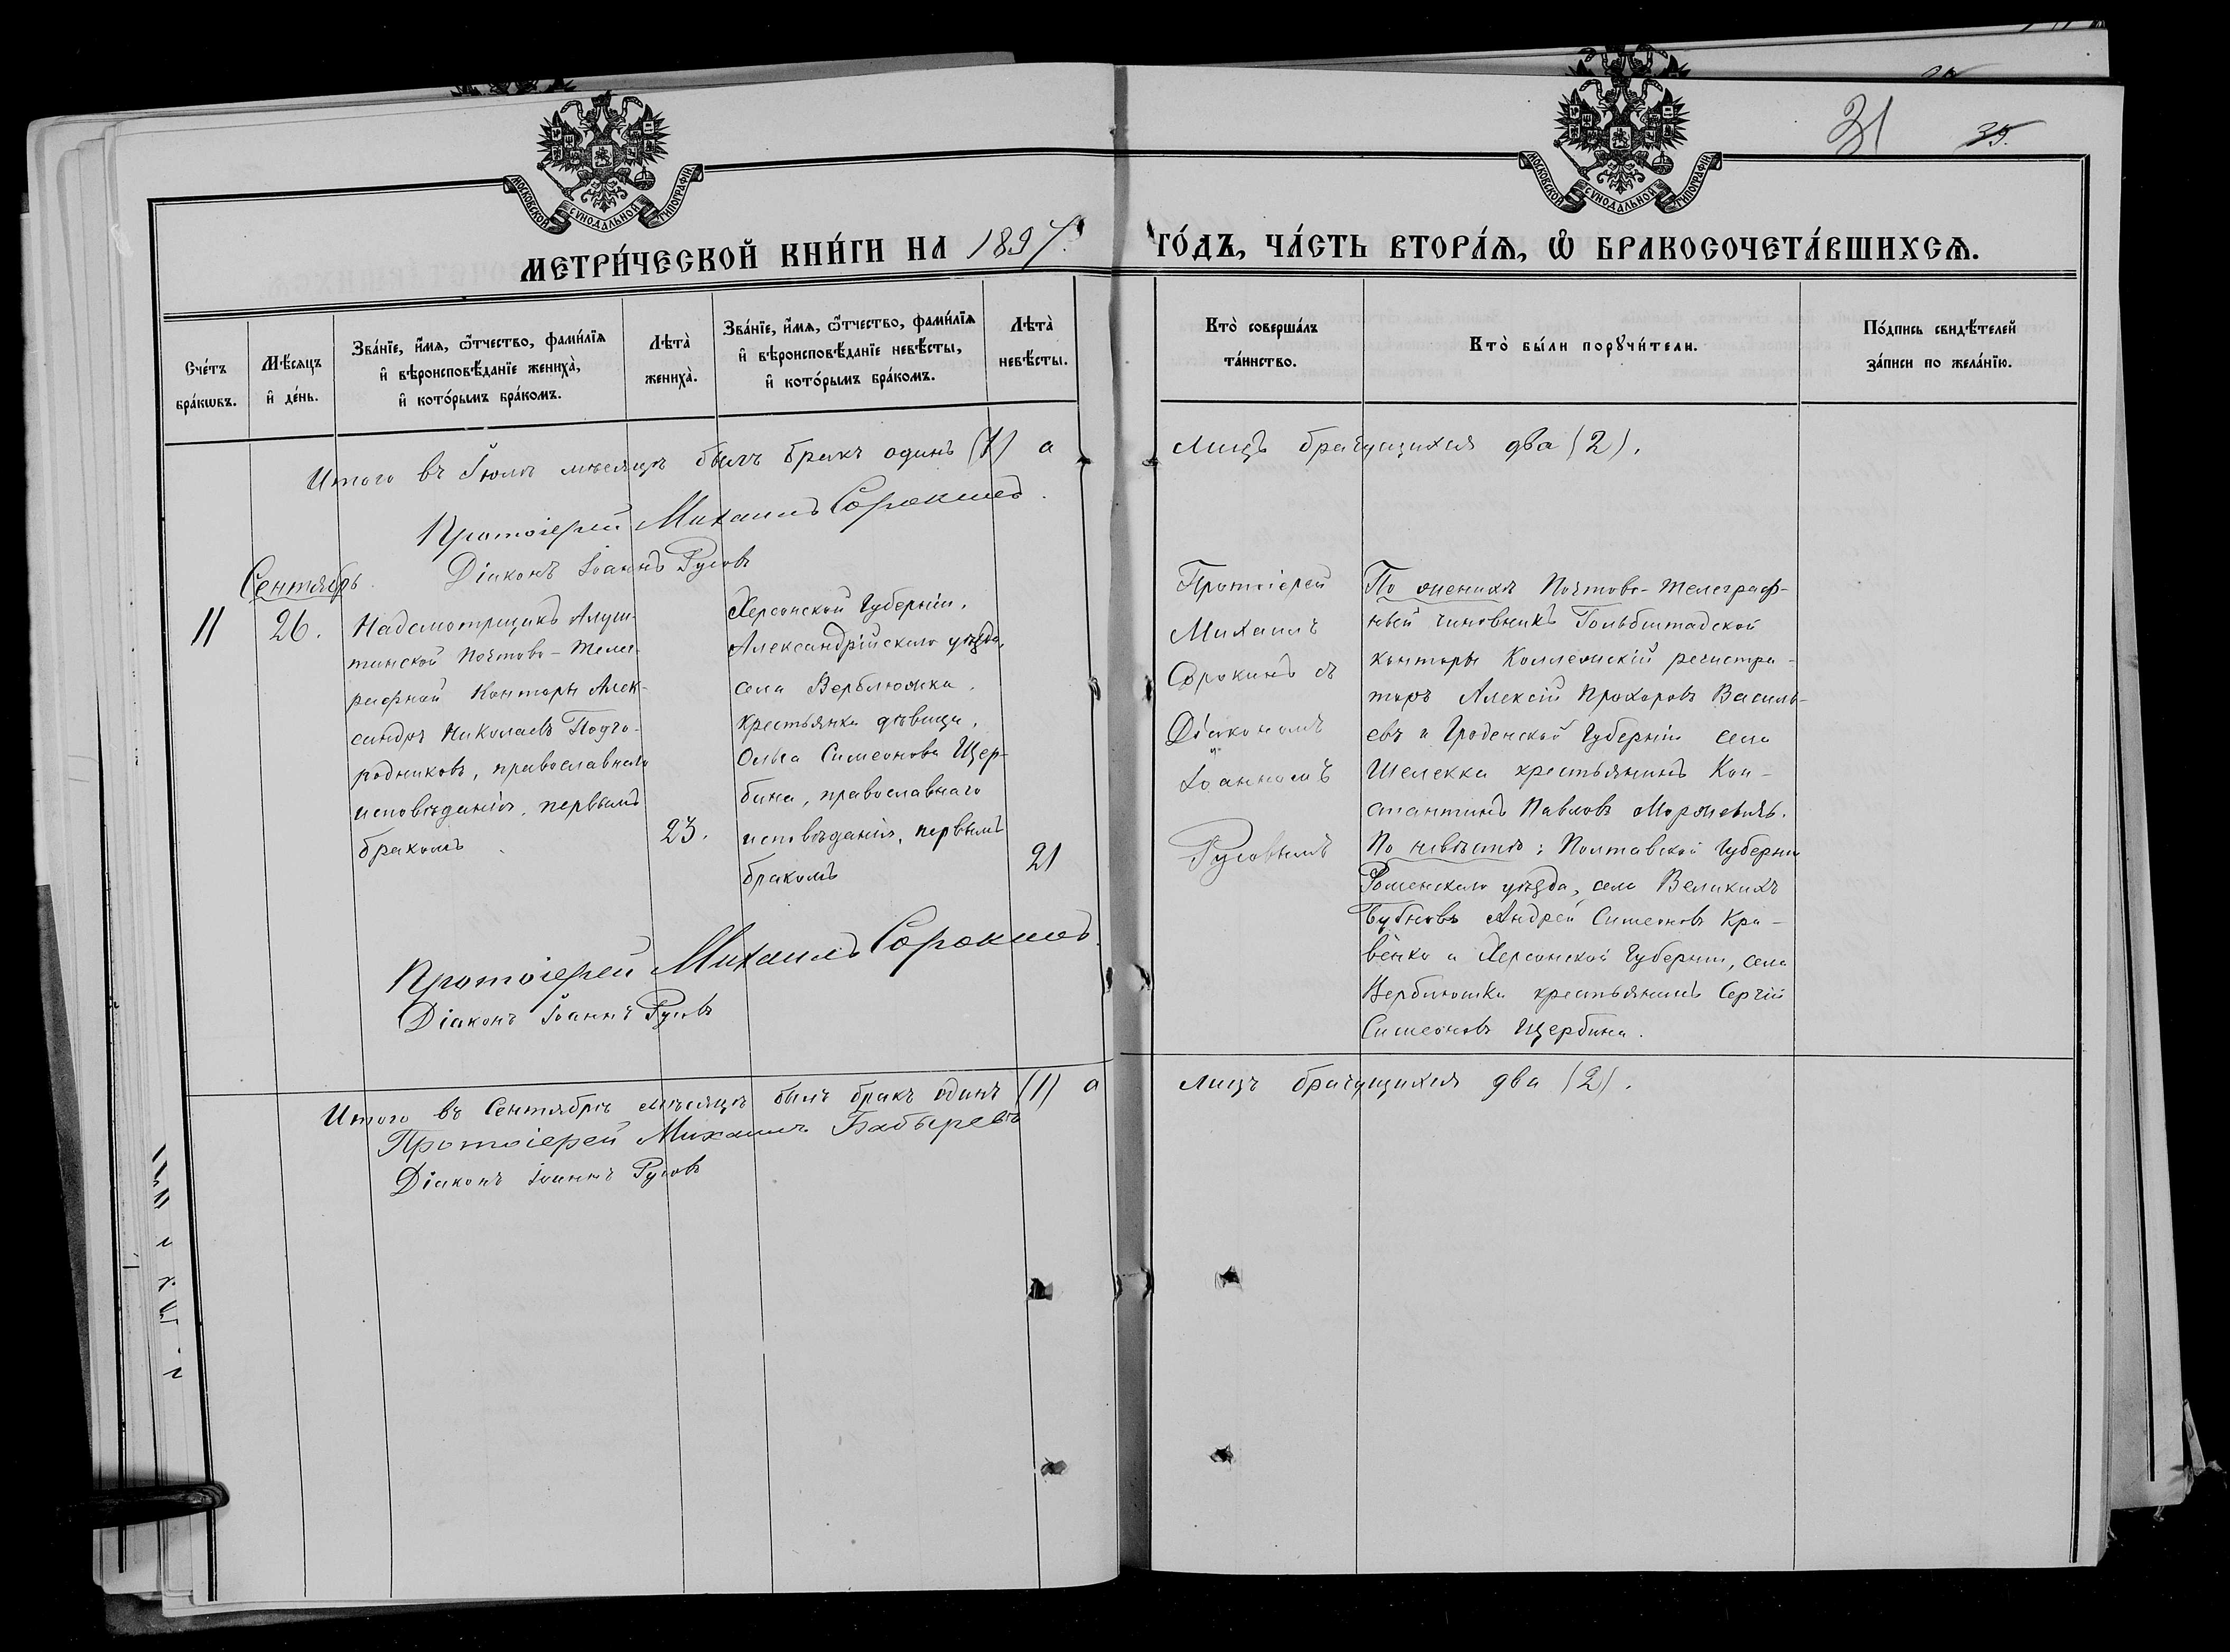 МОСКОВСКОЙ СѴНОДАЛЬНОЙ ТИПОГРАФІИ
МОСКОВСКОЙ СѴНОДАЛЬНОЙ ТИПОГРАФІИ
31 35.
МЕТРИ́ЧЕСКОЙ КНИ́ГИ НА 1897.
ГО́ДЪ, ЧА́СТЬ ВТОРА́Ѧ, Ѽ БРАКОСОЧЕТА́ВШИХСѦ.
Сче́тъ
бра́кѡвъ.
Мѣ́сѧцъ
и҆ де́нь.
Зва́нїе, и҆́мѧ, ѻ҆́тчество, фами́лїѧ
и҆ вѣроисповѣ́данїе жениха̀,
и҆ кото́рымъ бра́комъ.
Лѣта̀
жениха̀.
Зва́нїе, и҆́мѧ, ѻ҆́тчество, фами́лїѧ
и҆ вѣроисповѣ́данїе невѣ́сты,
и҆ кото́рымъ бра́комъ.
Лѣта̀
невѣ́сты.
Кто̀ соверша́лъ
та́инство.
Кто̀ бы́ли порꙋчи́тели.
По́дпись свидѣ́телей
за́писи по жела́нїю.
Итого въ Іюлѣ мѣсяцѣ былъ бракъ одинъ (1) а
Лицъ брачущихся два (2).
Протоіерей Михаилъ Сорокинъ.
Діаконъ Іоаннъ Русовъ
Сентябрь
11
26.
Надсмотрщикъ Алуш-
тинской Почтово-Телег-
рафной Конторы Алек-
сандръ Николаевъ Подго-
родниковъ, православнаго
исповѣданія, первымъ
бракомъ
23.
Херсонской Губерніи,
Александрійскаго уѣзда,
села Верблюжки,
крестьянка дѣвица,
Ольга Симеонова Щер-
бина, православнаго
исповѣданія, первымъ
бракомъ
21
Протоіерей
Михаилъ
Сорокинъ съ
Діакономъ
Іоанномъ
Русовымъ
По женихѣ Почтово-телеграф-
ный чиновникъ Гольбштадской
конторы Коллежскій регистра-
торъ Алексій Прохоровъ Василь-
евъ и Гроденской Губерніи села
Шелекка крестьянинъ Кон-
стантинъ Павловъ
По невѣстѣ: Полтавской Губерніи
Роменскаго уѣзда, села Великихъ
Бубновъ Андрей Симеоновъ Кра-
венко и Херсонской Губерніи, села
Верблюжки крестьянинъ Сергій
Симеоновъ Щербина.
Протоіерей Михаилъ Сорокинъ.
Діаконъ Іоаннъ Русовъ
Итого въ Сентябрѣ мѣсяцѣ былъ бракъ одинъ (1) а
Лицъ брачущихся два (2).
Протоіерей Михаилъ Бабыревъ
Діаконъ Іоаннъ Русовъ